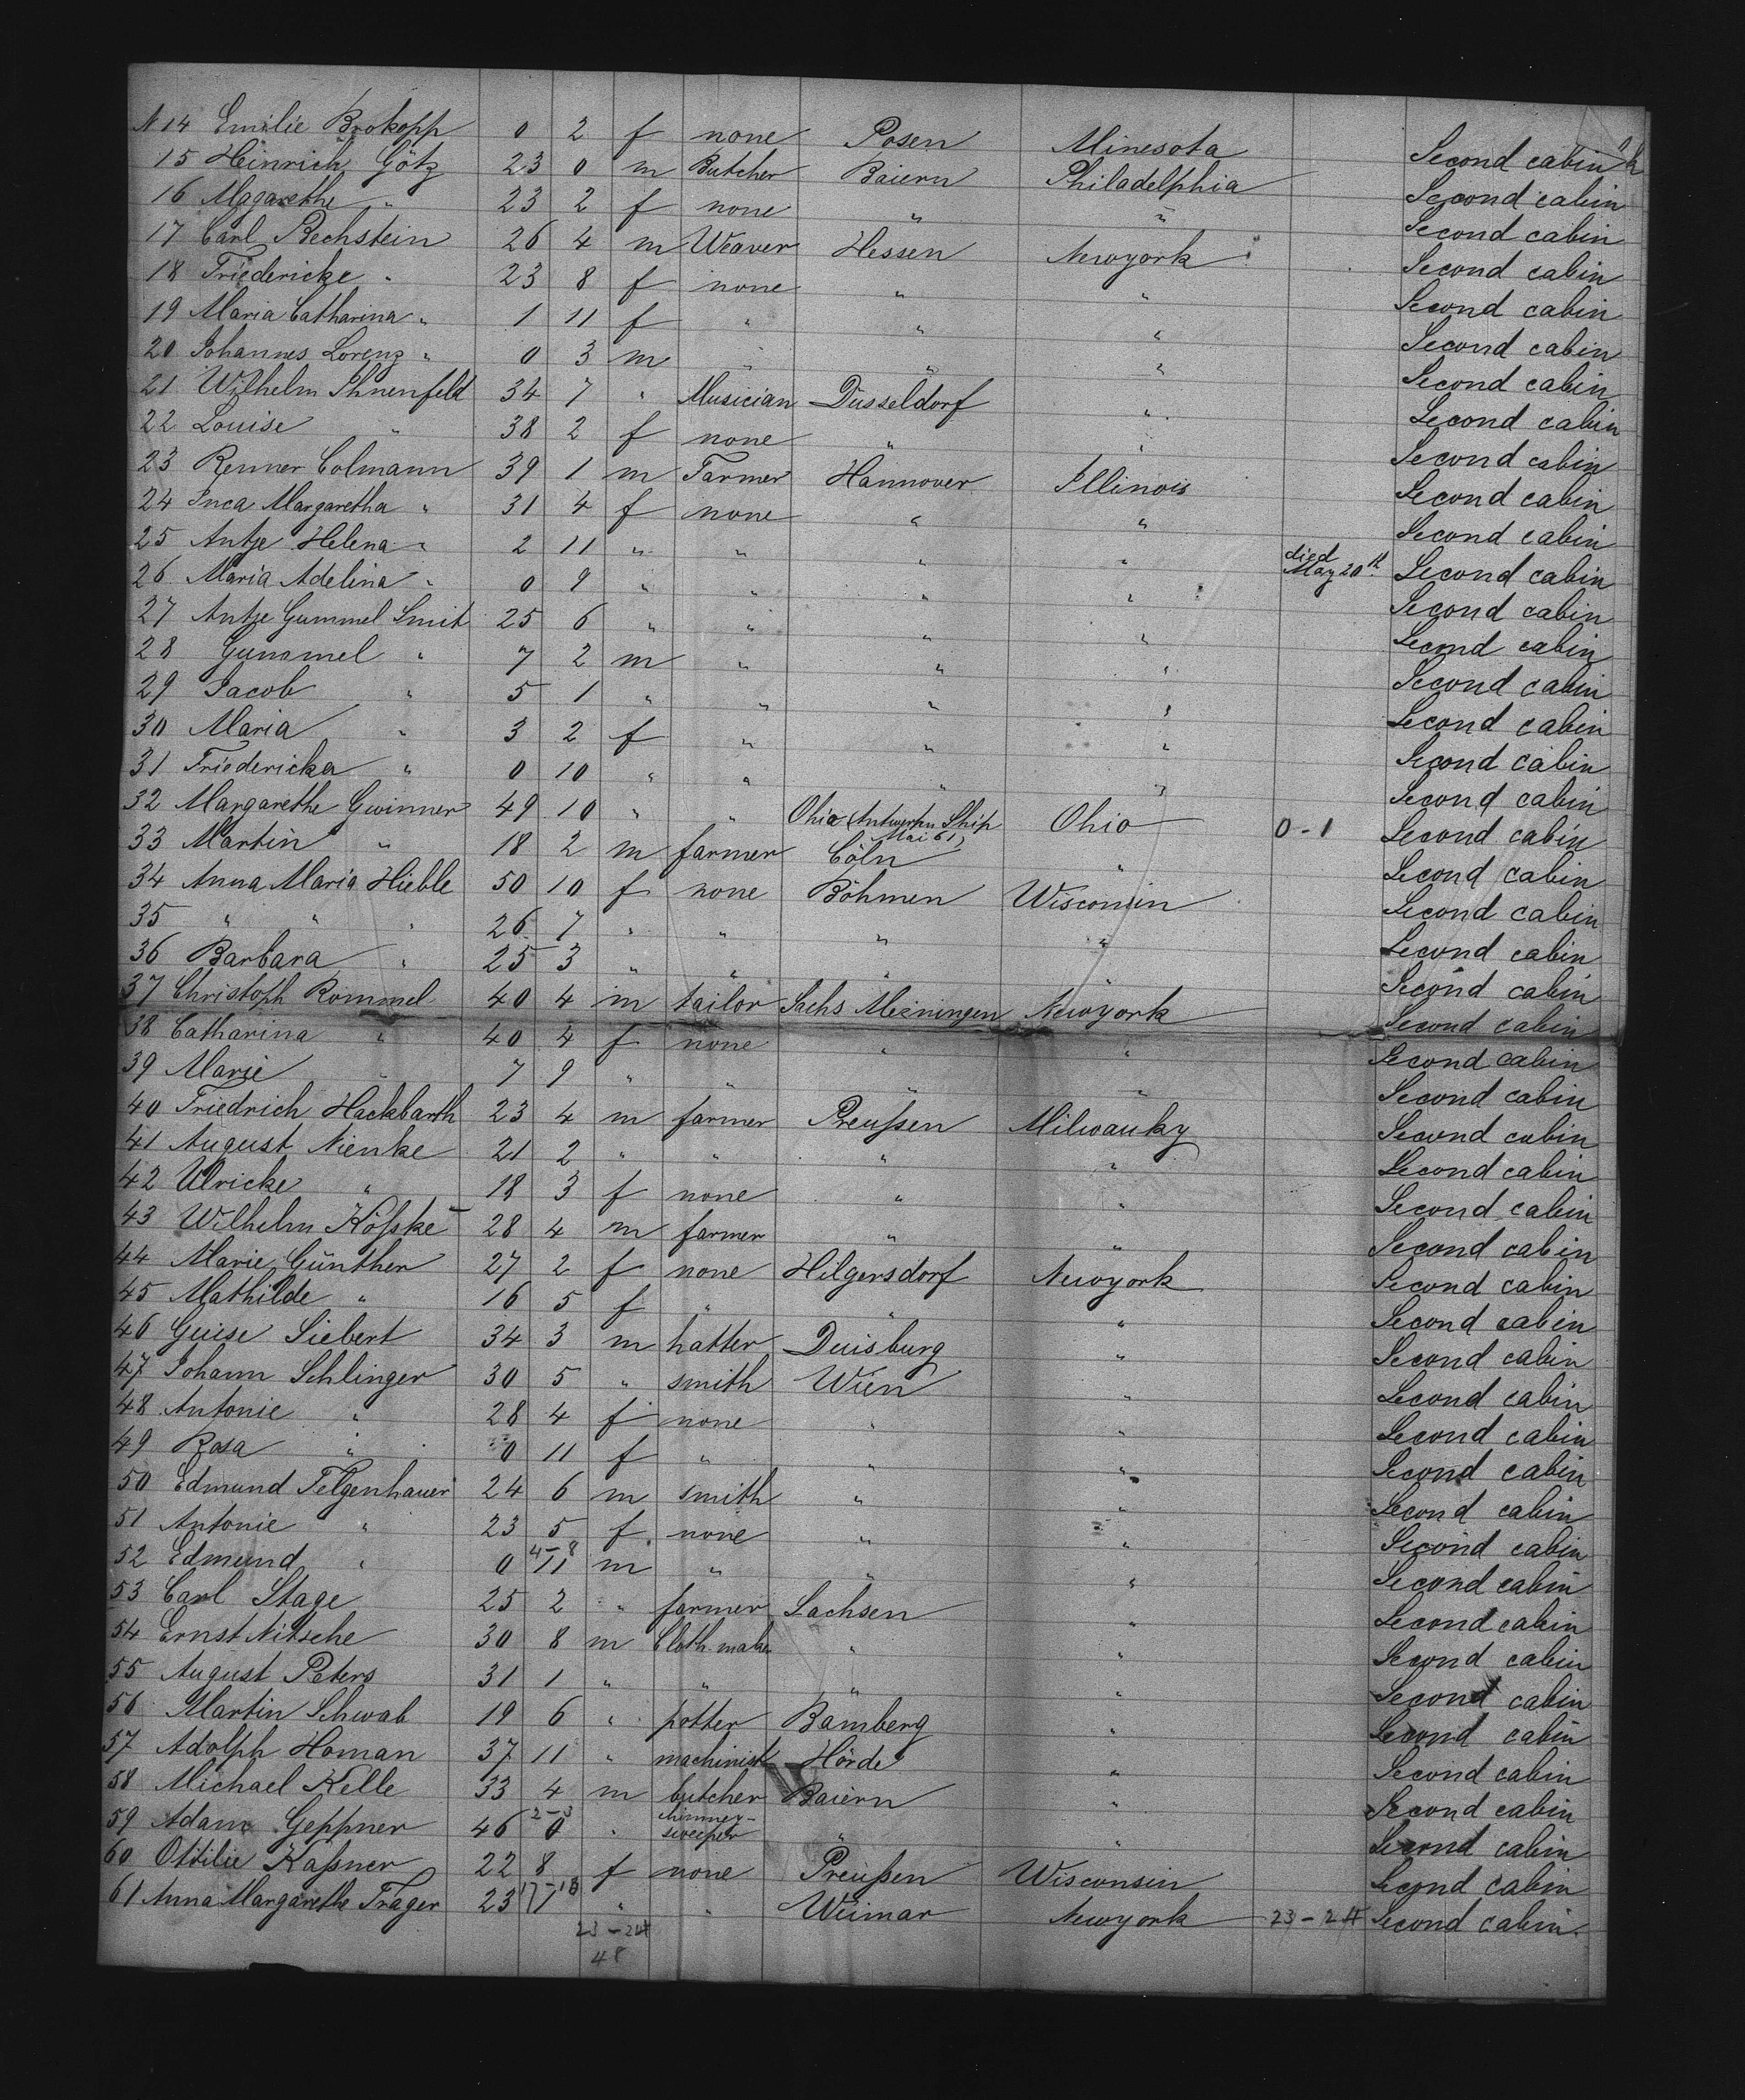 N 14 Emilie Brokopp 0 2 f none Posen Minesota Second cabin
15 Heinrich Götz 23 0 m Butcher Baiern Philadelphia Second cabin
16 Magarethe " 23 2 f none " " Second cabin
17 Carl Bechstein 26 4 m Weaver Hessen Newyork Second cabin
18 Friedericke " 23 8 f none " " Second cabin
19 Maria Catharina " 1 11 f " " " Second cabin
20 Johannes Lorenz " 0 3 m " " " Second cabin
21 Wilhelm Ihnenfeld 34 7 " Musician Dusseldorf " Second cabin
22 Louise " 38 2 f none " " Second cabin
23 Renner Colmann 39 1 m Farmer Hannover Illinois Second cabin
24 Inca Margaretha " 31 4 f none " " Second cabin
25 Antje Helena " 2 11 " " " " Second cabin
26 Maria Adelina " 0 9 " " " " died May 20th Second cabin
27 Antje Gummel Smit 25 6 " " " " Second cabin
28 Gummel " 7 2 m " " " Second cabin
29 Jacob " 5 1 " " " " Second cabin
30 Maria " 3 2 f " " " Second cabin
31 Friedericka " 0 10 " " " " Second cabin
32 Margarethe Gwinner 49 10 " " Ohio (Antwerpn Ship Mai 61) Ohio 0-1 Second cabin
33 Martin " 18 2 m farmer Cöln " Second cabin
34 Anna Maria Hieble 50 10 f none Böhmen Wisconsin Second cabin
35 " " " 26 7 " " " " Second cabin
36 Barbara " 25 3 " " " " Second cabin
37 Christoph Rommel 40 4 m tailor Sachs Meiningen Newyork Second cabin
38 Catharina " 40 4 f none " " Second cabin
39 Marie " 7 9 " " " " Second cabin
40 Friedrich Hackbarth 23 4 m farmer Preußen Milwauky Second cabin
41 August Nienke 21 2 " " " " Second cabin
42 Ulricke " 18 3 f none " " Second cabin
43 Wilhelm Kößke 28 4 m farmer " " Second cabin
44 Marie Günther 27 2 f none Hilgersdorf Newyork Second cabin
45 Mathilde " 16 5 f " " " Second cabin
46 Guise Siebert 34 3 m hatter Duisburg " Second cabin
47 Johann Schlinger 30 5 " smith Wien " Second cabin
48 Antonie " 28 4 f none " " Second cabin
49 Rosa " 0 11 f " " " Second cabin
50 Edmund Felgenhauer 24 6 m smith " " Second cabin
51 Antonie " 23 5 f none " " Second cabin
52 Edmund " 0 4-8 11 m " " " Second cabin
53 Carl Stage 25 2 " farmer Sachsen " Second cabin
54 Ernst Nitsche 30 8 m Cloth maker " " Second cabin
55 August Peters 31 1 " " " " Second cabin
56 Martin Schwab 19 6 " potter Bamberg " Second cabin
57 Adolph Homan 37 11 " machinist Hörde " Second cabin
58 Michael Kelle 33 4 m butcher Baiern " Second cabin
59 Adam Geppner 46 2-3 0 " chimney-sweeper " " Second cabin
60 Ottilie Kaßner 22 8 f none Preußen Wisconsin Second cabin
61 Anna Margareth Trager 23 17-18 1 " " Weimar Newyork 23-24 Second cabin
23-24
48